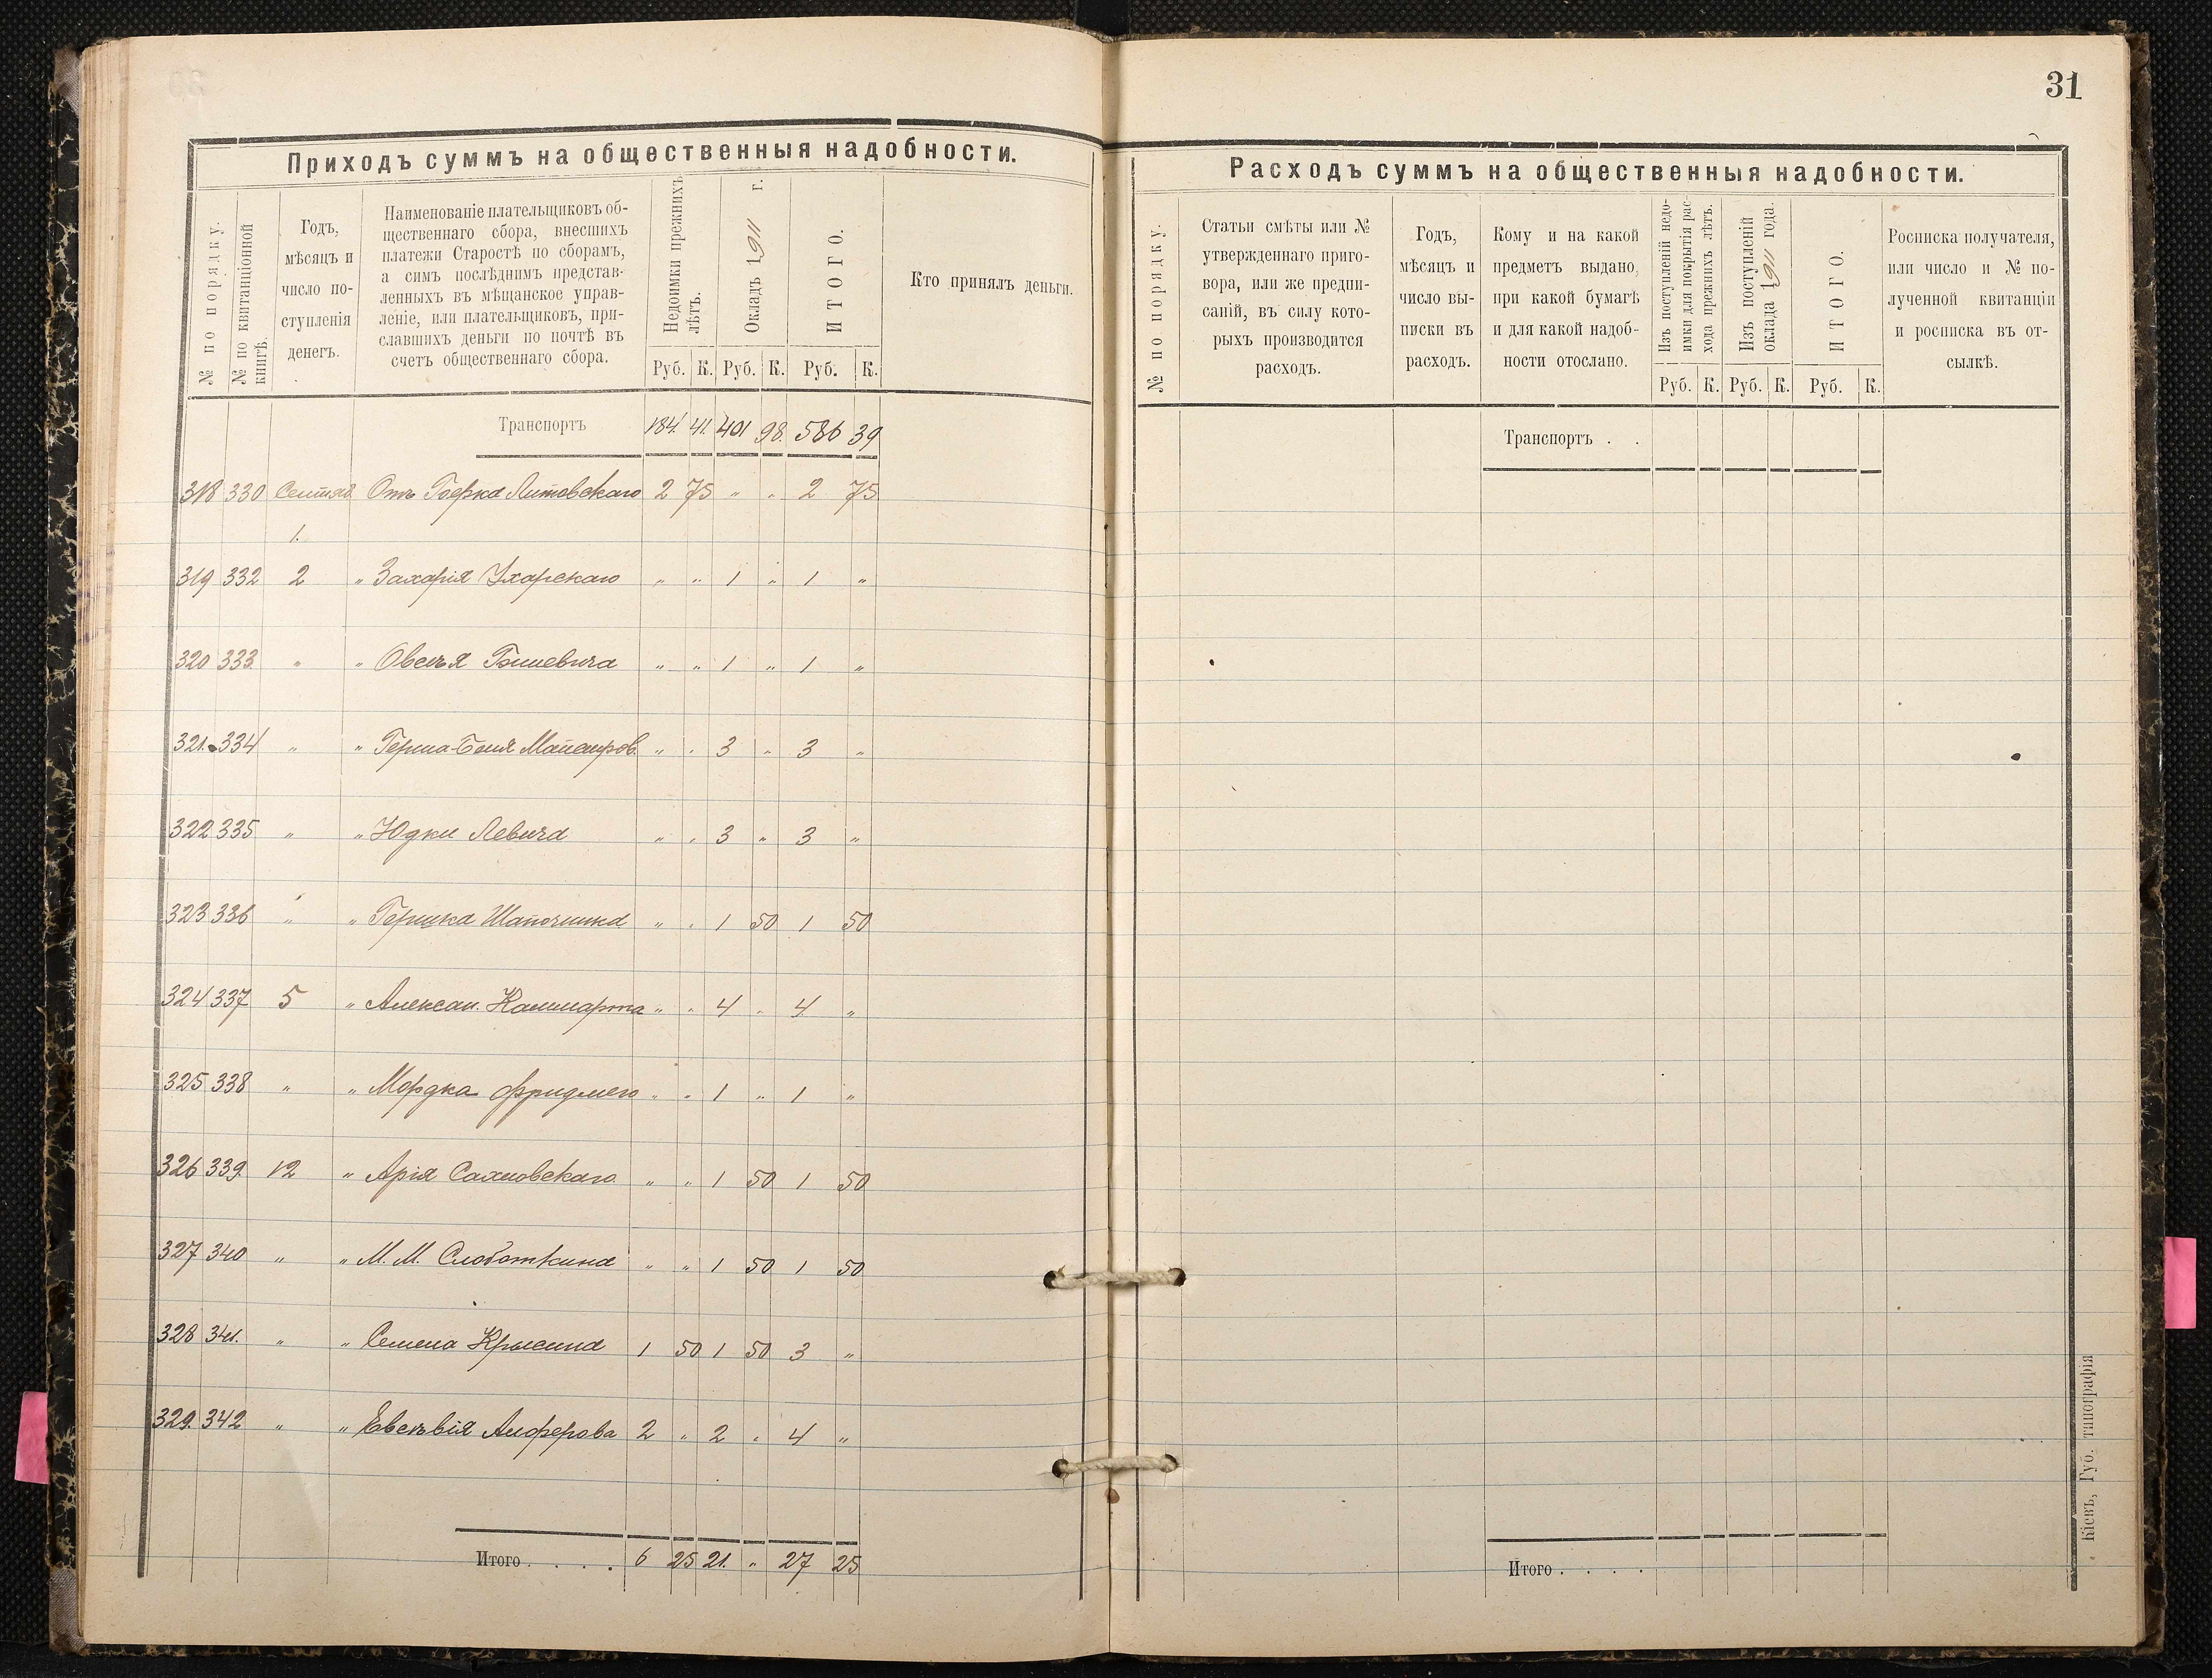 31
Приходъ суммъ на общественныя надобности.
№ по порядку.
№ по квитанціонной
книгѣ.
Годъ,
мѣсяцъ и
число по-
ступленія
денегъ.
Наименованіе плательщиковъ об-
щественнаго сбора, внесшихъ
платежи Старостѣ по сборамъ,
а симъ послѣднимъ представ-
ленныхъ въ мѣщанское управ-
леніе, или плательщиковъ, при-
славшихъ деньги по почтѣ въ
счетъ общественнаго сбора.
Недоимки прежнихъ
лѣтъ.
Окладъ 1911 г.
ИТОГО.
Руб. К. Руб. К. Руб. К.
Кто принялъ деньги.
Транспортъ 184. 41. 401 98. 586 39
318 330 Сентяб. Отъ Литовскаго 2 75 " " 2 75
1.
319 332 2 " Захарія " " 1 " 1 "
320 333 " " " " 1 " 1 "
321. 334 " " " " 3 " 3 "
322 335 " " Юдки Левича " " 3 " 3 "
323 336 " " Гершка Шапочника " " 1 50 1 50
324 337 5 " Алексан. " " 4 " 4 "
325 338 " " Мордка " " 1 " 1 "
326 339. 12 " Арія Сахновскаго " " 1 50 1 50
327 340 " " М. М. Слободкина " " 1 50 1 50
328 341. " " Семена Крысина 1 50 1 50 3 "
329. 342 " " Алферова 2 " 2 " 4 "
Итого . . . . 6 25 21. " 27 25
Расходъ суммъ на общественныя надобности.
№ по порядку.
Статьи смѣты или №
утвержденнаго приго-
вора, или же предпи-
саній, въ силу кото-
рыхъ производится
расходъ.
Годъ,
мѣсяцъ и
число вы-
писки въ
расходъ.
Кому и на какой
предметъ выдано,
при какой бумагѣ
и для какой надоб-
ности отослано.
Изъ поступленій недо-
имки для покрытія рас-
хода прежнихъ лѣтъ.
Изъ поступленій
оклада 1911 года.
ИТОГО.
Руб. К. Руб. К. Руб. К.
Росписка получателя,
или число и № по-
лученной квитанціи
и росписка въ от-
сылкѣ.
Транспортъ . .
Итого . . . .
Кіевъ, Губ. типографія